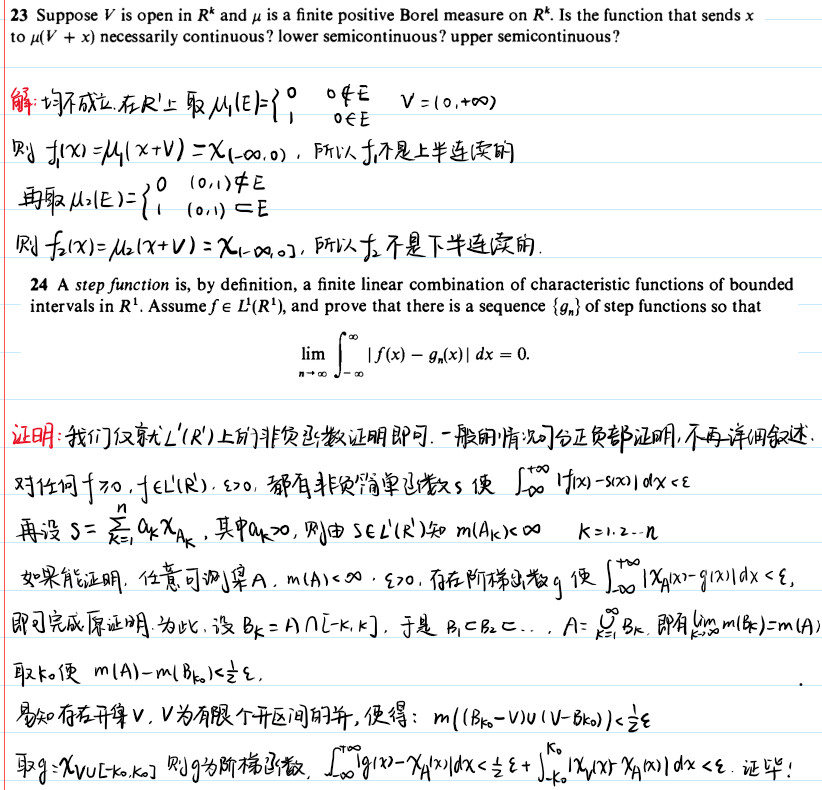 23 Suppose V is open in Rᵏ and μ is a finite positive Borel measure on Rᵏ. Is the function that sends x
to μ(V + x) necessarily continuous? lower semicontinuous? upper semicontinuous?
解: 均不成立. 在R¹上取 μ₁(E)={0 0∉E V=(0,+∞)
1 0∈E
则 f₁(x)=μ₁(x+V)=χ(-∞,0), 所以f₁不是上半连续的
再取 μ₂(E)={0 (0,1)⊄E
1 (0,1)⊂E
则 f₂(x)=μ₂(x+V)=χ(-∞,0], 所以f₂不是下半连续的.
24 A step function is, by definition, a finite linear combination of characteristic functions of bounded
intervals in R¹. Assume f ∈ L¹(R¹), and prove that there is a sequence {gₙ} of step functions so that
lim n→∞ ∫_{-∞}^{∞} |f(x) − gₙ(x)| dx = 0.
证明: 我们仅就L¹(R¹)上的非负函数证明即可. 一般的情况可分正负部证明, 不再详细叙述.
对任何f≥0, f∈L¹(R¹), ε>0, 都有非负简单函数s使 ∫_{-∞}^{+∞} |f(x)-s(x)|dx<ε
再设 s=∑_{k=1}^{n} aₖχ_{Aₖ}, 其中aₖ>0, 则由 s∈L¹(R¹)知 m(Aₖ)<∞ k=1.2...n
如果能证明, 任意可测集A, m(A)<∞, ε>0, 存在阶梯函数g使 ∫_{-∞}^{+∞} |χ_A(x)-g(x)|dx<ε,
即可完成原证明. 为此, 设 Bₖ=A∩[-k,k], 于是 B₁⊂B₂⊂..., A=⋃_{k=1}^{∞} Bₖ. 即有lim_{k→∞} m(Bₖ)=m(A)
取k₀使 m(A)-m(B_{k₀})<½ε.
易知存在开集V, V为有限个开区间的并, 使得: m((B_{k₀}-V)∪(V-B_{k₀}))<½ε
取g=χ_{V∪[-k₀,k₀]} 则g为阶梯函数, ∫_{-∞}^{+∞} |g(x)-χ_A(x)|dx<½ε+∫_{-k₀}^{k₀} |χ_V(x)-χ_A(x)|dx<ε. 证毕!